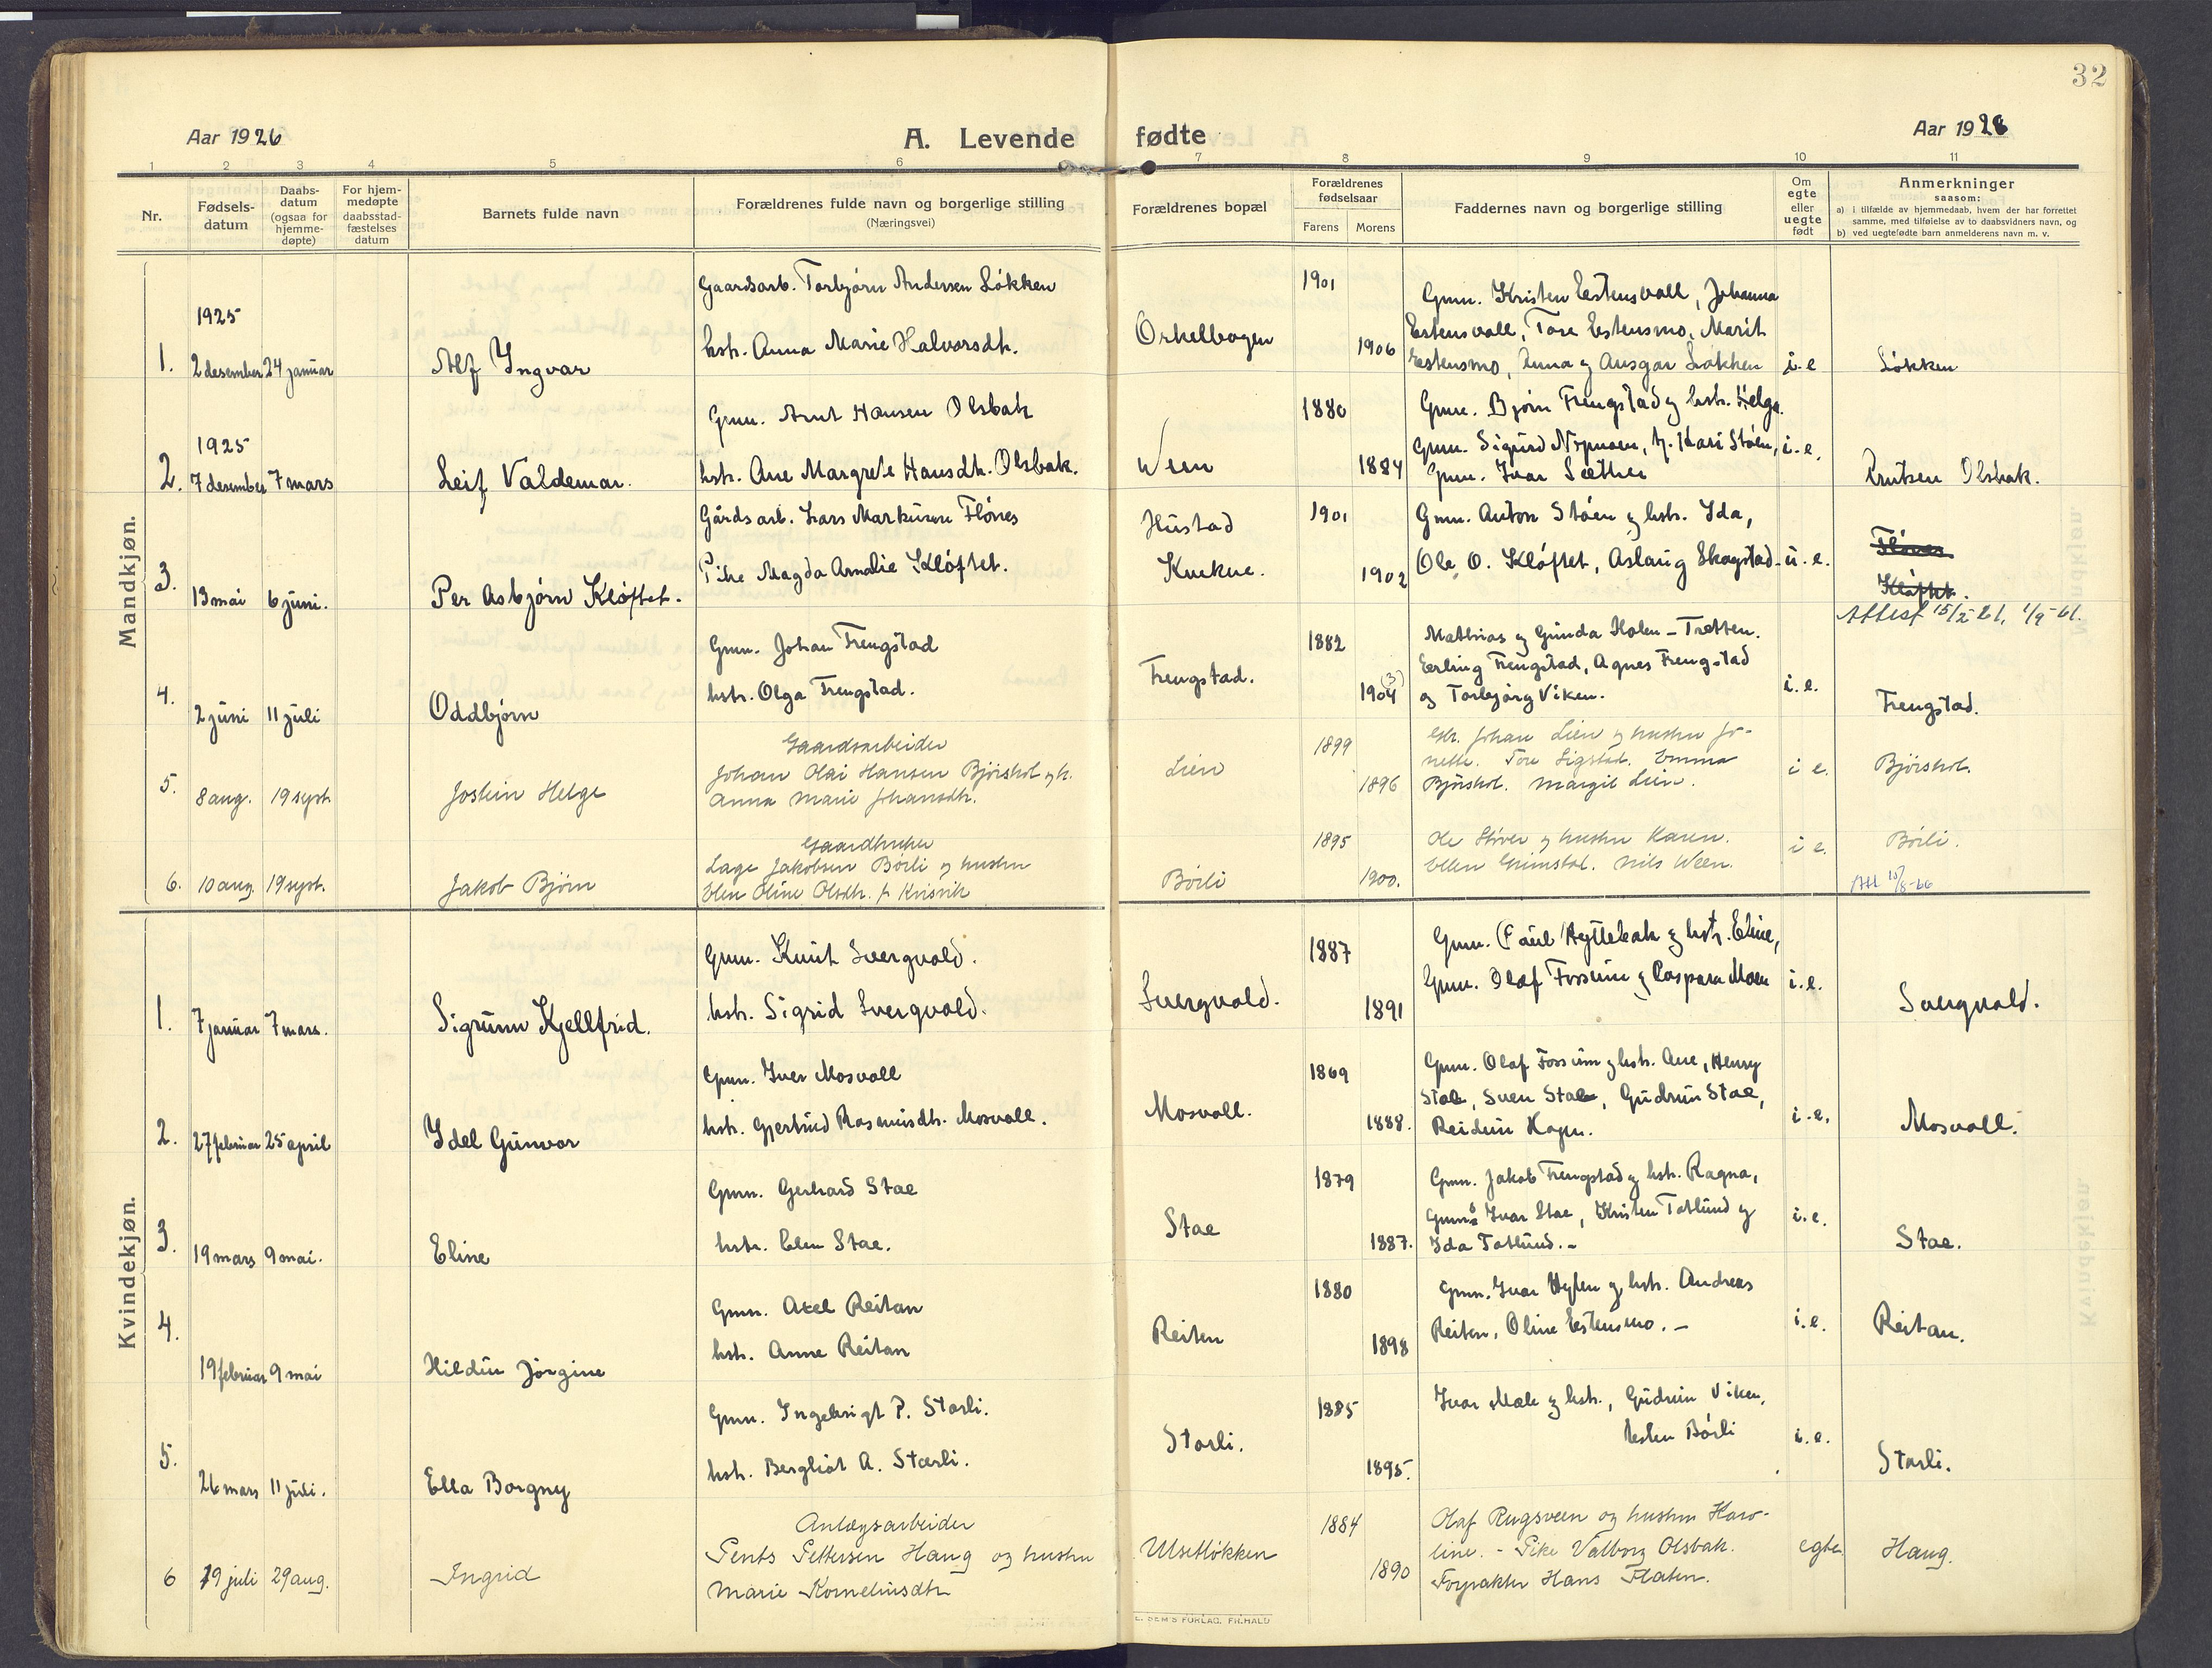 32
Aar 1926
A. Levende fødte
Aar 1926
1 2 3 4 5 6 7 8 9 10 11
Nr.
Fødsels-
datum
Daabs-
datum
(ogsaa for
hjemme-
døpte)
For hjem-
medøpte
daabsstad-
fæstelses
datum
Barnets fulde navn
Forældrenes fulde navn og borgerlige stilling
(Næringsvei)
Forældrenes bopæl
Forældrenes
fødselsaar
Farens Morens
Faddernes navn og borgerlige stilling
Om
egte
eller
uegte
født
Anmerkninger
saasom:
a) i tilfælde av hjemmedaab, hvem der har forrettet
samme, med tilføielse av to daabsvidners navn, og
b) ved uegtefødte barn anmelderens navn m. v.
Mandkjøn.
1925
1. 2 desember 24 januar
Alf Ingvar
Gaardsarb. Torbjørn Andersen Løkken
hstr. Anna Marie Halvorsdtr.
Orkelbogen
1901
1906
Gmn. Kristen Estensvoll, Johanna
Estensvoll, Tore Estensmo, Marit
Estensmo, Anna og Ansgar Løkken
i.e
Løkken
1925
2. 7 desember 7 mars
Leif Valdemar.
Gmn. Arnt Hansen Olsbak
hstr. Ane Margrete Hansdtr. Olsbak.
Ween
1880
1884
Gmn. Bjørn Frengstad og hstr. Helga.
Gmn. Sigurd Nymoen, p. Kari Støen,
Gmn. Ivar Sæther
i.e.
Olsbak.
3. 13 mai 6 juni.
Per Asbjørn Kløftet.
Gårdsarb. Lars Markusen Flønes
Pike Magda Amalie Kløftet.
Hustad
Kvikne.
1901
1902
Gmn. Anton Støen og hstr. Ida,
Ole O. Kløftet, Aslaug Skogstad.
u.e.
Flønes
Kløftet.
Attest 15/2-61, 1/9-61.
4. 2 juni 11 juli
Oddbjørn
Gmn. Johan Frengstad
hstr. Olga Frengstad.
Frengstad.
1882
1904 (3)
Mathias og Gunda Holen - Tretten.
Erling Frengstad, Agnes Frengstad
og Torbjørg Viken.
i.e.
Frengstad.
5. 8 aug. 19 sept.
Jostein Helge
Gaardsarbeider
Johan Olai Hansen Bjørshol og h.
Anna Marie Johansdtr.
Lien
1899
1896
Gbr. Johan Lien og hustru Jo-
nette. Tore Sigstad. Emma
Bjørshol. Margit Lien.
i e.
Bjørshol.
6. 10 aug. 19 sept.
Jakob Bjørn
Gaardbruker
Lage Jakobsen Børli og hustru
Elen Oline Olsdtr. f. Krisvik
Børli
1895
1900.
Ole Støver og hustru Karen.
Ellen Grimstad. Nils Ween.
i e.
Børli.
Att 15/8-66
Kvindekjøn.
1. 7 januar 7 mars.
Sigrunn Kjellfrid.
Gmn. Knut Svergvold.
hstr. Sigrid Svergvold.
Svergvold.
1887
1891
Gmn. Paul Hyttebak og hstr. Eline,
Gmn. Olaf Fossum og Caspara Moen
i.e.
Svergvold.
2. 27 februar 25 april
Idel Gunvor
Gmn. Iver Mosvoll
hstr. Gjertrud Rasmusdtr. Mosvoll.
Mosvoll.
1869
1888.
Gmn. Olaf Fossum og hstr. Ane, Henry
Stae, Sven Stae, Gudrun Stae,
Reidun Hagen.
i.e.
Mosvoll.
3. 19 mars 9 mai.
Eline
Gmn. Gerhard Stae
hstr. Elen Stae.
Stae
1879
1887.
Gmn. Jakob Frengstad og hstr. Ragna,
Gmn. Ivar Stae, Kristen Totlund og
Ida Totlund. -
i.e.
Stae.
4. 19 februar 9 mai
Hildur Jørgine
Gmn. Axel Reitan
hstr. Anne Reitan
Reiten
1880
1898
Gmn. Ivar Hylen og hstr. Andreas
Reiten, Oline Estensmo. -
i.e.
Reitan.
5. 26 mars 11 juli.
Ella Borgny
Gmn. Ingebrigt P. Storli.
hstr. Bergliot A. Storli.
Storli.
1885
1895.
Ivar Mæle og hstr., Gudrun Viken,
Esten Børli
i.e.
Storli.
6 19 juli 29 aug.
Ingrid
Anlægsarbeider
Pents Pettersen Haug og hustru
Marie Kornelinsdtr
Ulsetløkken
1884
1890
Olaf Rugsveen og hustru Karo-
line. - Pike Valborg Olsbak.
Forpakter Hans Flaten.
egte.
Haug.
E. SEM'S FORLAG, FR.HALD